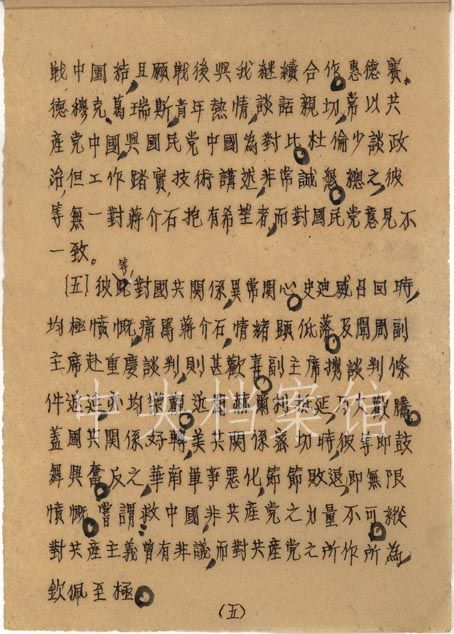 戰中團結,且願戰後與我繼續合作。惠德賽、
德穆克、葛瑞斯,青年熱情,談話親切,常以共
產党中國與國民党中國為對比。杜倫少談政
治,但工作踏實,技術講述,非常誠懇。總之,彼
等無一對蔣介石抱有希望者,而對國民党意見不
一致。
[五]彼等對國共関係異常関心。史迪威召回時,
均極憤慨,痛罵蔣介石,情緒顕低落。及聞周副
主席赴重慶談判,則甚歡喜。副主席携談判條
件返延,亦均樂觀。近赫爾利來延,乃大歡騰。
蓋國共関係好轉,美共関係密切時,彼等即鼓
舞興奮。反之,華南軍事惡化,節節敗退,即無限
憤慨。嘗謂:救中國,非共產党之力量不可。縱
對共產主義曾有非議,而對共產党之所作所為,
欽佩至極。
(五)
中央档案馆